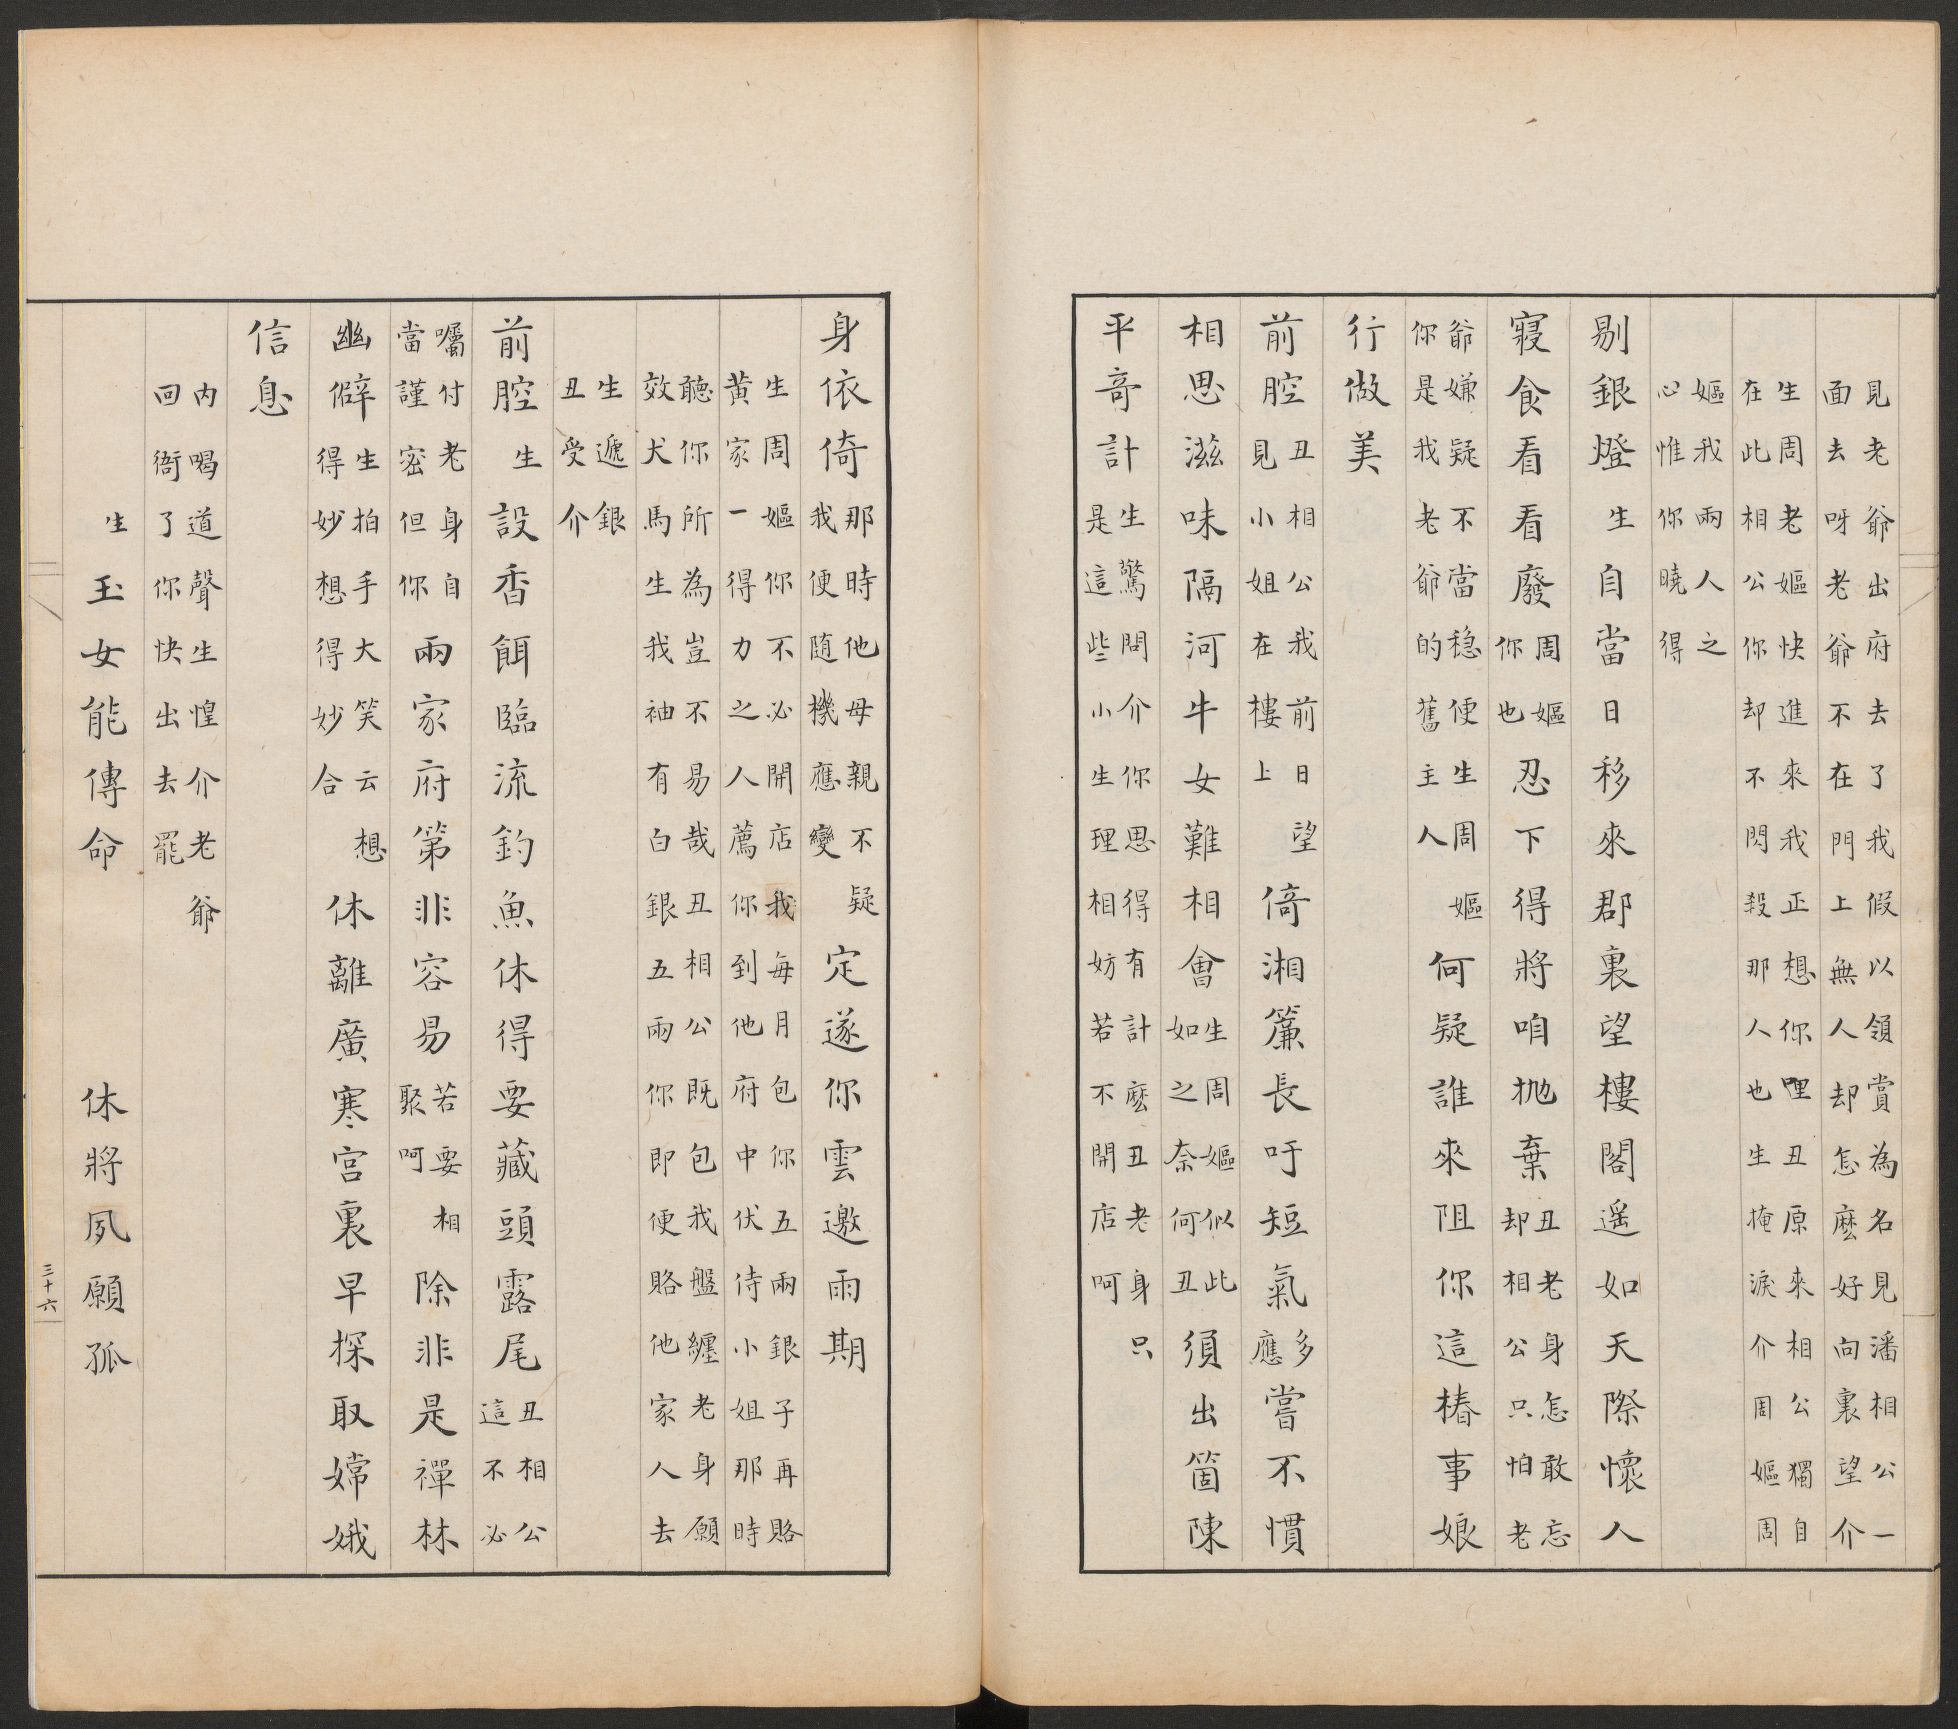 見老爺出府去了我假以領賞為名見潘相公一
面去呀老爺不在門上無人却怎麽好向裏望介
生周老嫗快進來我正想你哩丑原來相公獨自
在此相公你却不閃殺那人也生掩淚介周嫗周
嫗我兩人之
心惟你曉得
剔銀燈生自當日移來郡裏望樓閣遥如天際懷人
寢食看看廢周嫗你也忍下得將咱抛棄丑老身怎敢忘却相公只怕老
爺嫌疑不當穏便生周嫗你是我老爺的舊主人何疑誰來阻你這椿事娘
行做美
前腔丑相公我前日望見小姐在樓上倚湘簾長吁短氣多應嘗不慣
相思滋味隔河牛女難相會生周嫗似此如之奈何丑須出箇陳
平奇計生驚問介你思得有計麽丑老身只是這些小生理相妨若不開店呵
身依倚那時他母親不疑我便随機應變定遂你雲邀雨期
生周嫗你不必開店我每月包你五兩銀子再賂
黄家一得力之人薦你到他府中伏侍小姐那時
聽你所為豈不易哉丑相公既包我盤纏老身願
效犬馬生我袖有白銀五兩你即便賂他家人去
生遞銀
丑受介
前腔生設香餌臨流釣魚休得要藏頭露尾丑相公這不必
囑付老身自當謹密但你兩家府第非容易若要相聚呵除非是禪林
幽僻生拍手大笑云想得妙想得妙合休離廣寒宫裏早探取嫦娥
信息
内喝道聲生惶介老爺
回衙了你快出去罷
生玉女能傳命 休將夙願孤
三十六